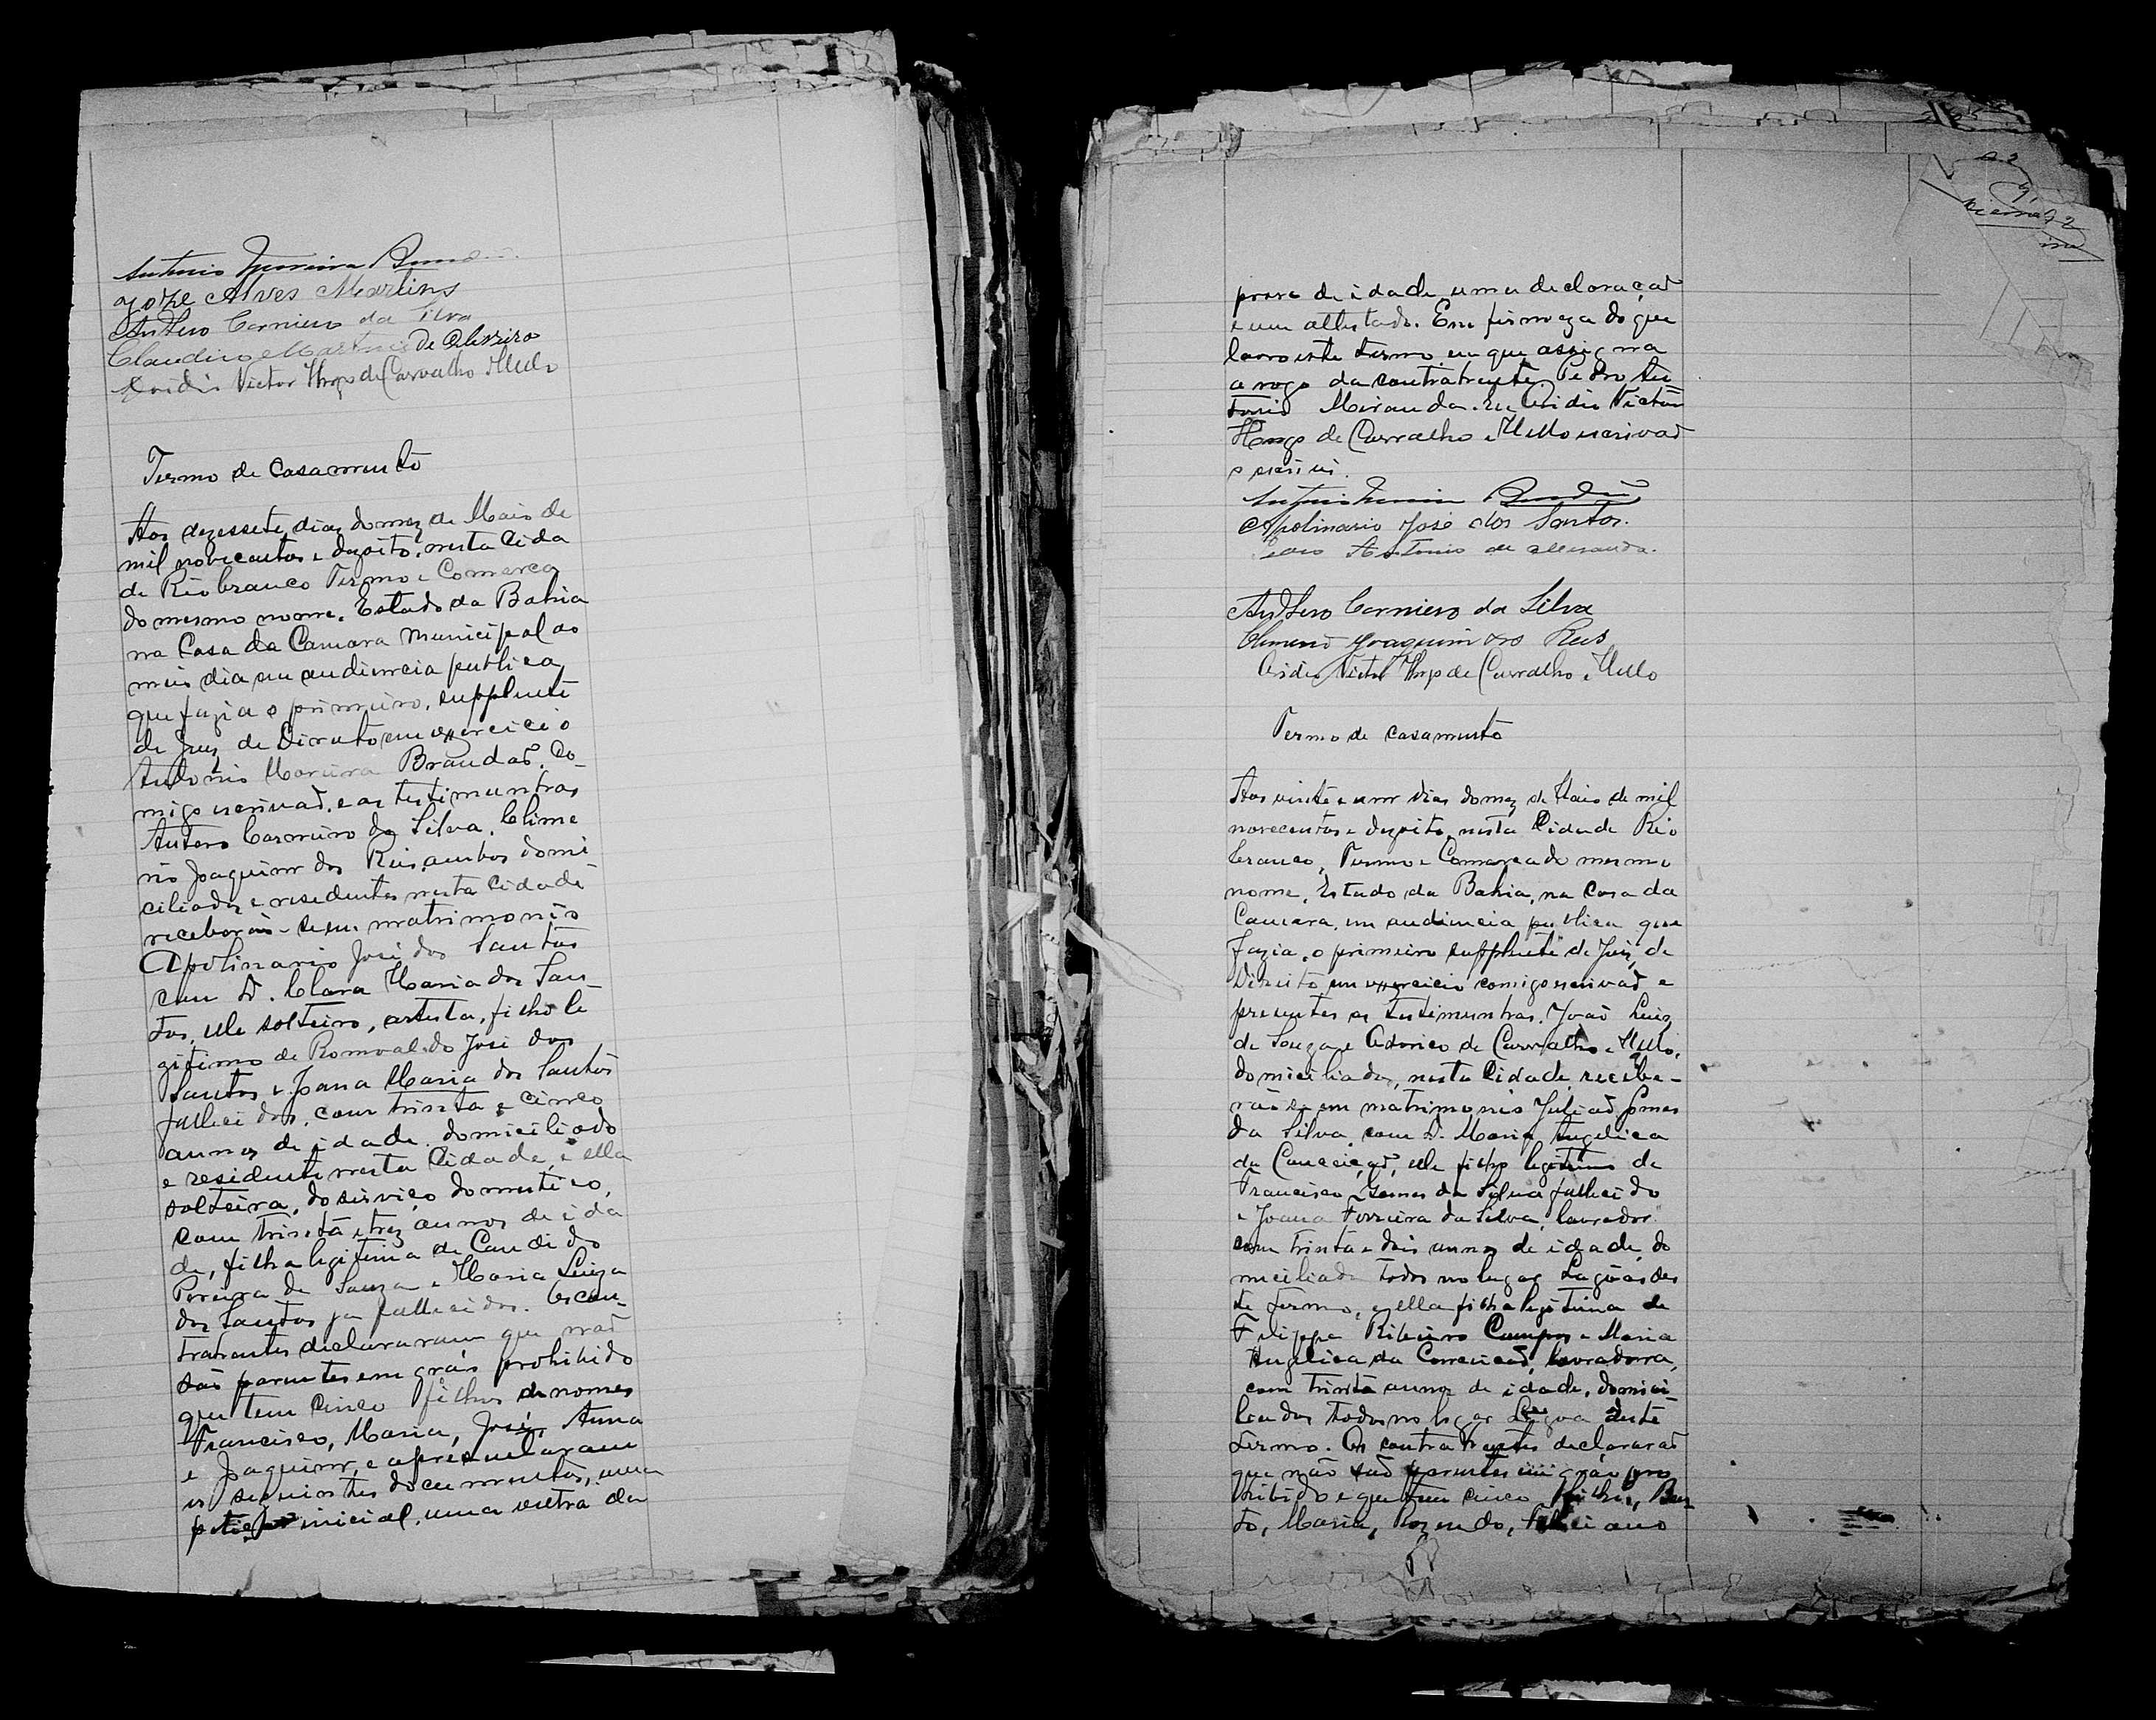 Antonio Moreira Brandão
José Alves Martins
Anthero Carneiro da Silva
Claudino Martins de Oliveira
Ovidio Victor Hugo de Carvalho Mello
Termo de Casamento
Aos dezessete dias do mez de Maio de
mil novecentos e dezoito, nesta Cida
de Rio branco Termo e Comarca
do mesmo nome, Estado da Bahia
na Casa da Camara Municipal ao
meio dia em audiencia publica
que fazia o primeiro supplente
de Juiz de Direito em exercicio
Antonio Moreira Brandão, Co-
migo escrivão, e as testimunhas
Antero Carneiro da Silva, Clime
rio Joaquim dos Reis, ambos domi
ciliados e residentes nesta Cidade
receberão-se em matrimonio
Apolinario José dos Santos
com D. Clara Maria dos San-
tos, elle solteiro, artista, filho le
gitimo de Romoaldo José dos
Santos e Joana Maria dos Santos
fallecidos, com trinta e cinco
annos de idade, domiciliado
e residente nesta Cidade, e ella
solteira, do serviço domestico,
com trinta e trez annos de ida
de, filha legitima de Candido
Pereira de Souza e Maria Luiza
dos Santos ja fallecidos. Os con-
tratantes declararam que não
são parentes em gráo prohibido
que tem cinco filhos de nomes
Francisco, Maria, José, Anna
e Joaquim, e apresentaram
os seguintes documentos, uma
petição inicial, uma outra da
prova de idade, uma declaração
e um attestado. Em firmeza do que
lavro este termo em que assigna
a rogo da contratante Pedro An
tonio Miranda. Eu Ovidio Victor
Hugo de Carvalho e Mello escrivão
o escrivi.
Antonio Moreira Brandão
Apolinario José dos Santos.
Pedro Antonio de Miranda.
Anthero Carneiro da Silva
Climerio Joaquim dos Reis
Ovidio Victor Hugo de Carvalho e Mello
Termo de casamento
Aos vinte e um dias do mez de Maio de mil
novecentos e dezoito, nesta Cidade Rio
branco, Termo e Comarca do mesmo
nome, Estado da Bahia, na Casa da
Camara, em audiencia publica que
fazia, o primeiro supplente de Juiz de
Direito em exercicio comigo escrivão e
presentes as testimunhas João Luiz
de Souza e Odorico de Carvalho e Mello,
domiciliados, nesta Cidade, recebe-
rão se em matrimonio Julião Gomes
da Silva, com D. Maria Angelica
da Conceição, elle filho legitimo de
Francisco Gomes da Silva fallecido
e Joana Ferreira da Silva, lavrador
com trinta e dois annos de idade, do
miciliado todos no lugar Lagôa des
te termo, e ella filha legitima de
Felippe Ribeiro Campos e Maria
Angelica da Conceicão, lavradora,
com trinta annos de idade, domici-
leados todos no lugar Lagoa deste
termo. Os contratantes declararão
que não são parentes em gráo pro
hibido e que tem cinco filhos, Ben
to, Maria, Rozendo, Feliciano